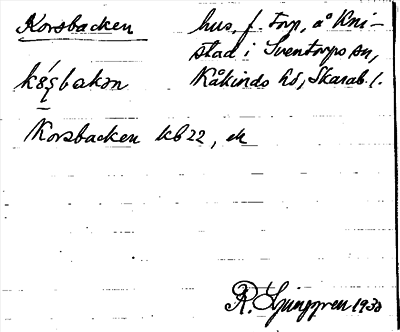 Korsbacken hus, f. torp, å Kni-
stad i Sventorps sn,
Kåkinds hd, Skarab. l.
Korsbacken kb 22, ek
R. Ljunggren 1930